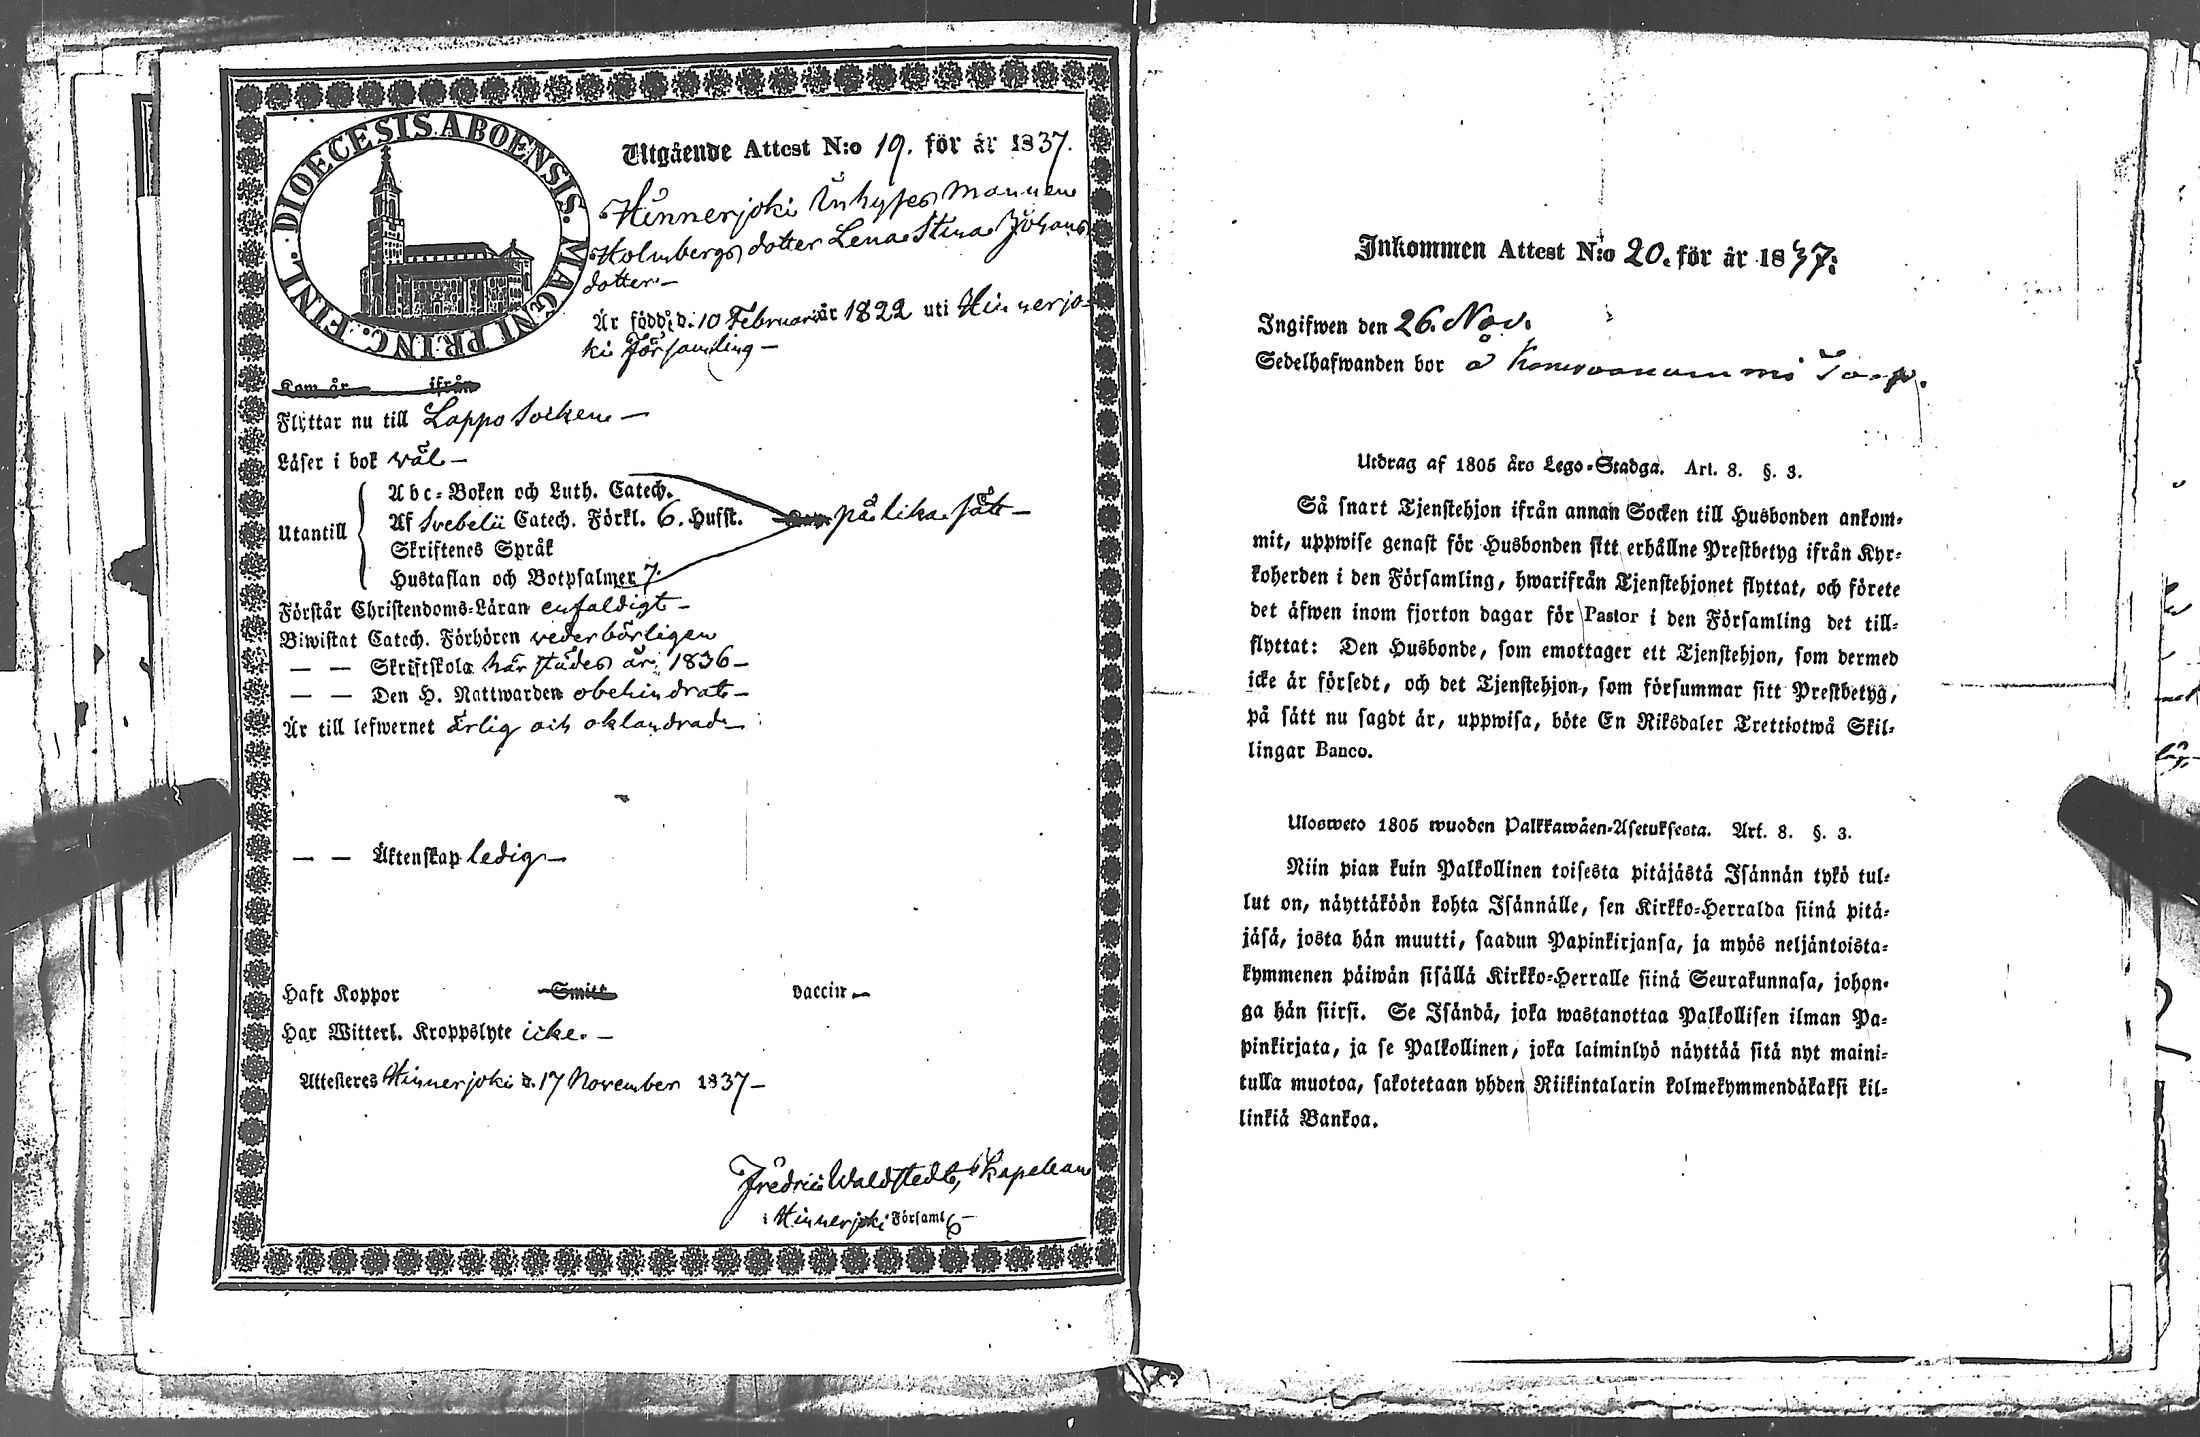 DIOECESIS ABOENSIS. MAGNI PRINC. FINL.
Utgående Attest N:o 19. för år 1837.
Hinnerjoki Inhyses Mannen
Holmbergs dotter Lena Stina Johans
dotter –
Är född d. 10 Februari år 1822 uti Hinnerjo-
ki Församling –
Kom år ifrån
Flyttar nu till Lappo Socken –
Läser i bok wäl –
Utantill
Abc-Boken och Luth. Catech.
Af Svebelii Catech. Förkl. 6. Hufst.
Skriftenes Språk
Hustaflan och Botpsalmer 7.
på lika sätt –
Förstår Christendoms-Läran enfaldigt –
Biwistat Catech. Förhören vederbörligen
— — Skriftskola härstädes år 1836 –
— — Den H. Nattwarden obehindrat –
Är till lefwernet Ärlig och oklandrad –
— — Äktenskap ledig –
Haft Koppor Smitt vaccin –
Har Witterl. Kroppslyte icke. –
Attesteres Hinnerjoki d. 17 November 1837 –
Fredric Waldstedt, Kapellan
i Hinnerjoki Församl
Inkommen Attest N:o 20. för år 1837:
Ingifwen den 26. Nov.
Sedelhafwanden bor å Torp.
Utdrag af 1805 års Lego-Stadga. Art. 8. §. 3.
Så snart Tjenstehjon ifrån annan Socken till Husbonden ankom-
mit, uppwise genast för Husbonden sitt erhållne Prestbetyg ifrån Kyr-
koherden i den Församling, hwarifrån Tjenstehjonet flyttat, och förete
det äfwen inom fjorton dagar för Pastor i den Församling det till-
flyttat: Den Husbonde, som emottager ett Tjenstehjon, som dermed
icke är försedt, och det Tjenstehjon, som försummar sitt Prestbetyg,
på sätt nu sagdt är, uppwisa, böte En Riksdaler Trettiotwå Skil-
lingar Banco.
Ulosweto 1805 wuoden Palkkawäen-Asetuksesta. Art. 8. §. 3.
Niin pian kuin Palkollinen toisesta pitäjästä Isännän tykö tul-
lut on, näyttäköön kohta Isännälle, sen Kirkko-Herralda siinä pitä-
jäsä, josta hän muutti, saadun Papinkirjansa, ja myös neljäntoista-
kymmenen päiwän sisällä Kirkko-Herralle siinä Seurakunnasa, johon-
ga hän siirsi. Se Isändä, joka wastanottaa Palkollisen ilman Pa-
pinkirjata, ja se Palkollinen, joka laiminlyö näyttää sitä nyt maini-
tulla muotoa, sakotetaan yhden Riikintalarin kolmekymmendäkaksi kil-
linkiä Bankoa.